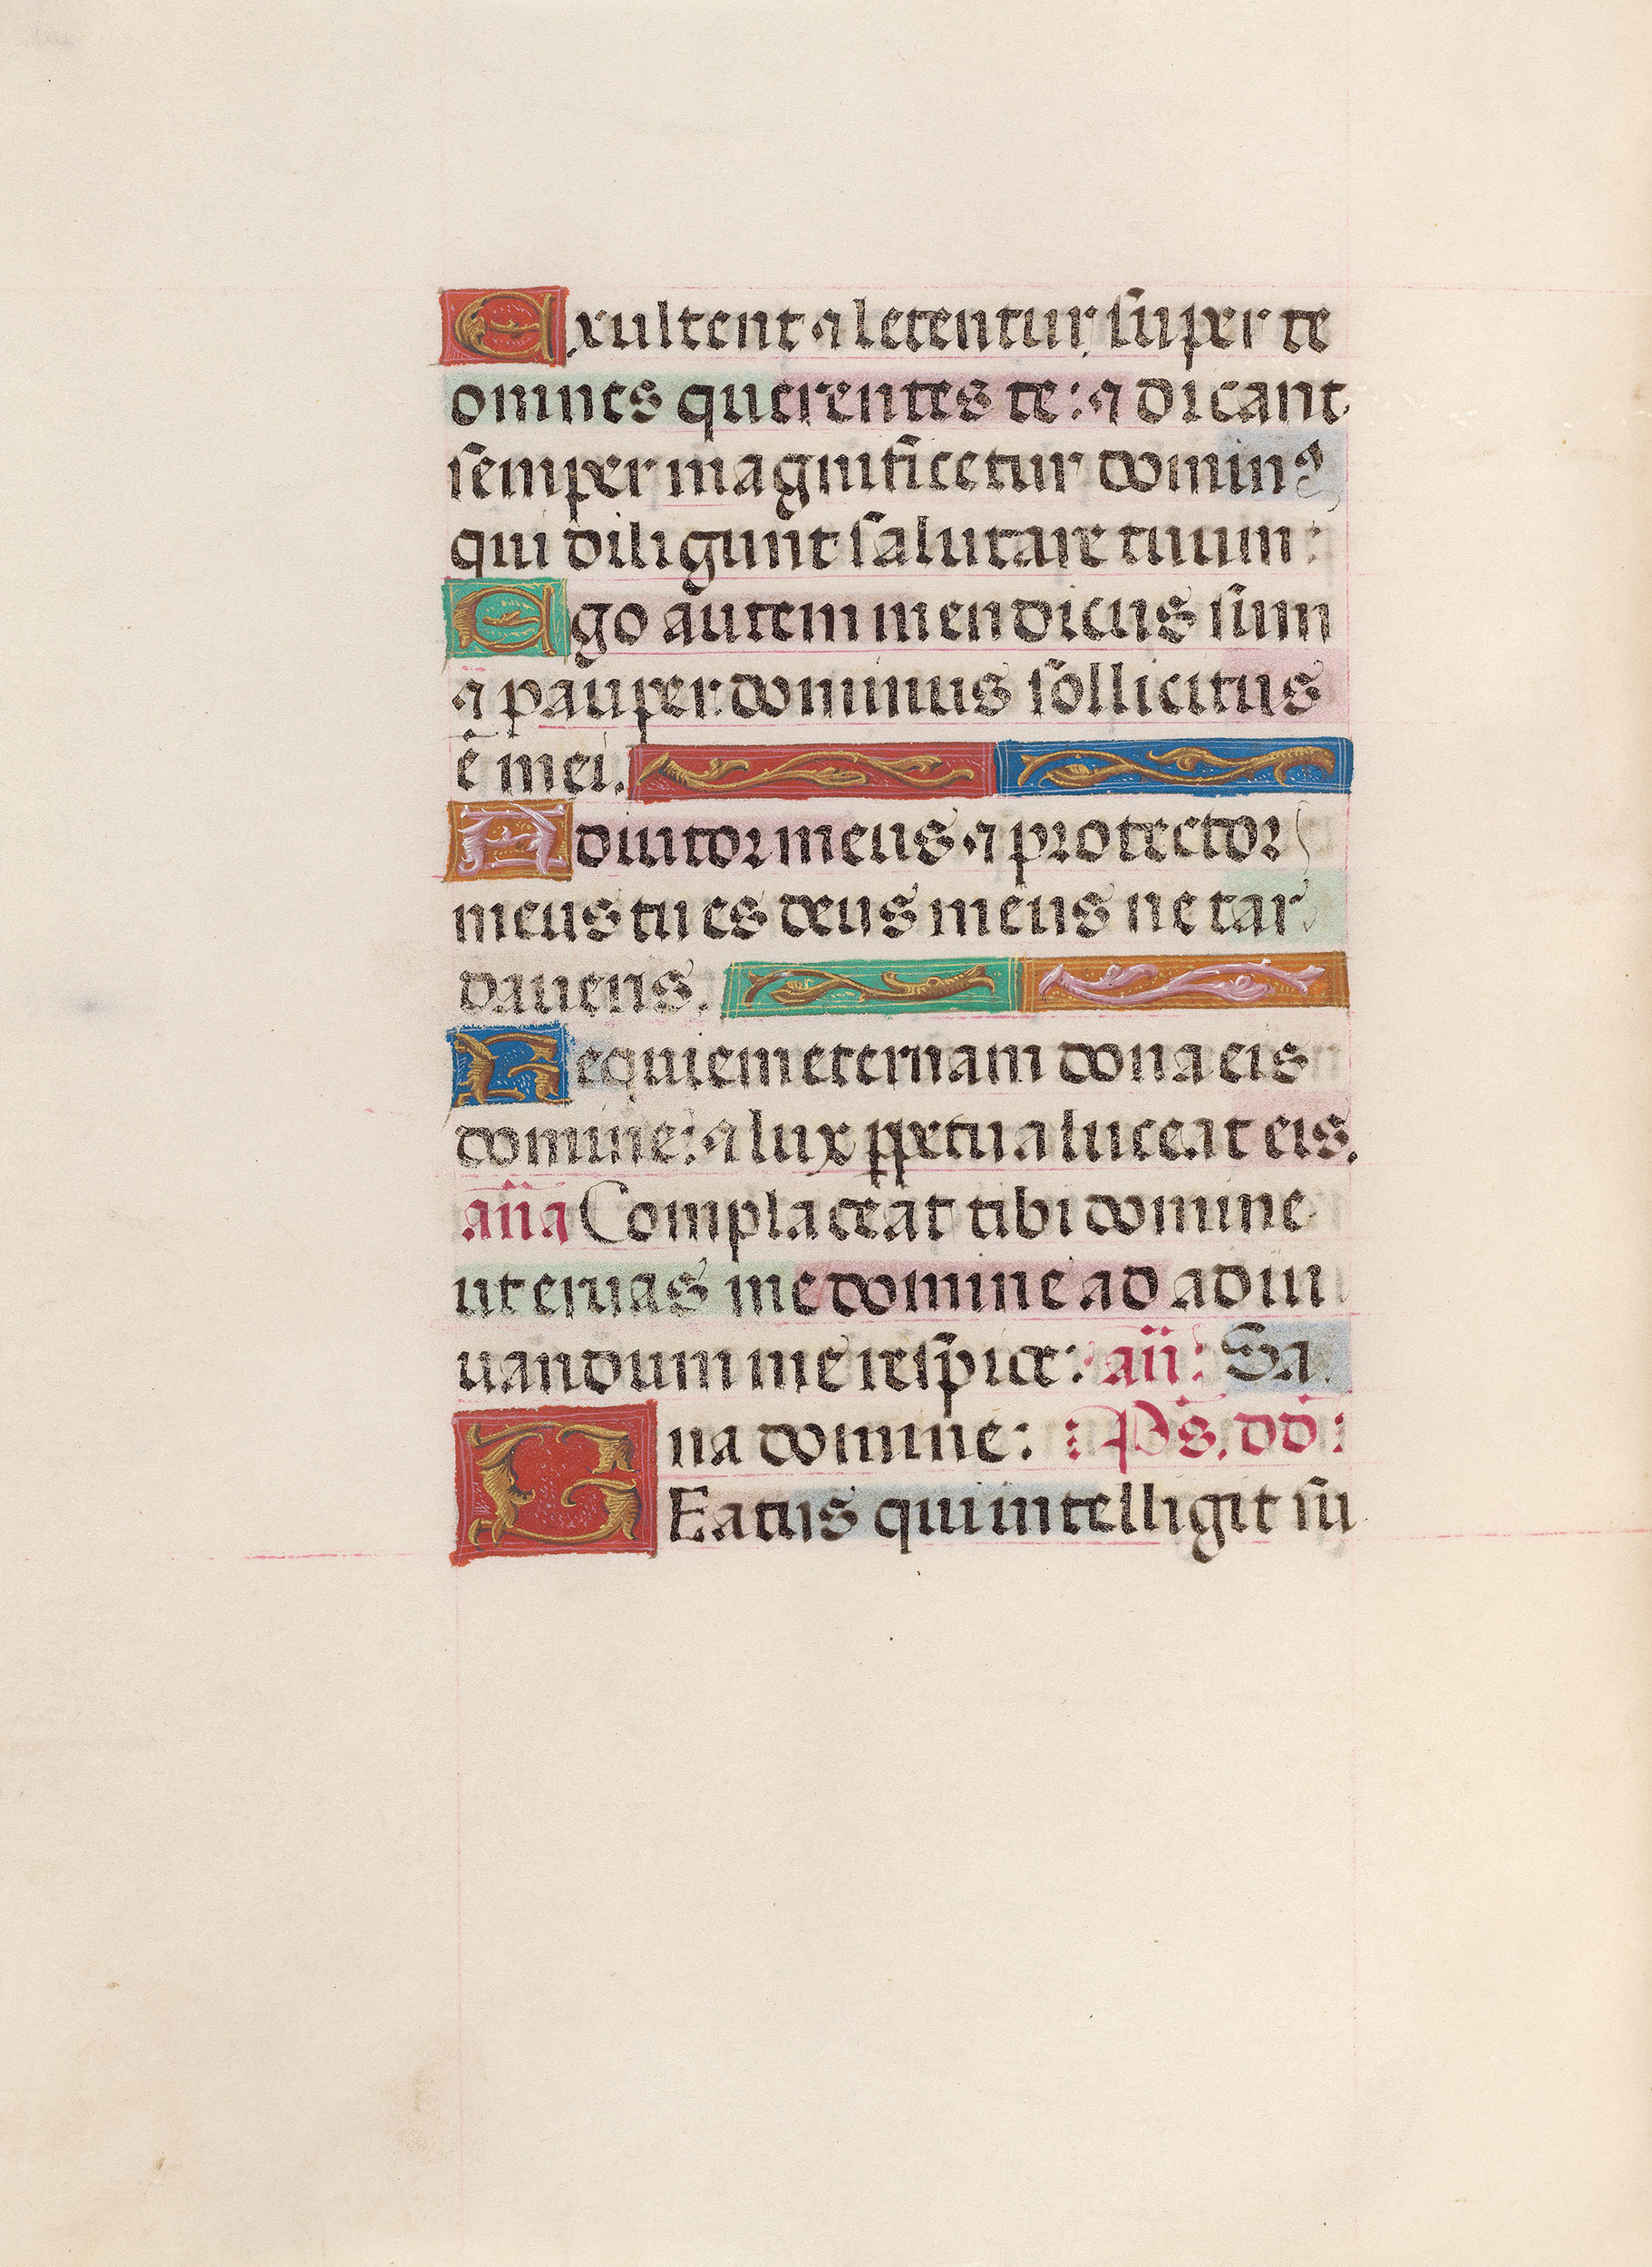 Exultent ⁊ letentur super te
omnes querentes te: ⁊ dicant
semper magnificetur dominꝰ
qui diligunt salutare tuum:
Ego autem mendicus sum
⁊ pauper: dominus sollicitus
ē mei.
Adiutor meus ⁊ protector
meus tu es deus meus ne tar
daueris.
Requiem eternam dona eis
domine: ⁊ lux ꝑpetua luceat eis.
an̄a Complaceat tibi domine
ut eruas me domine ad adiu
uandum me respice: an̄: Sa
na domine: Ps. dd:
BEatus qui intelligit su